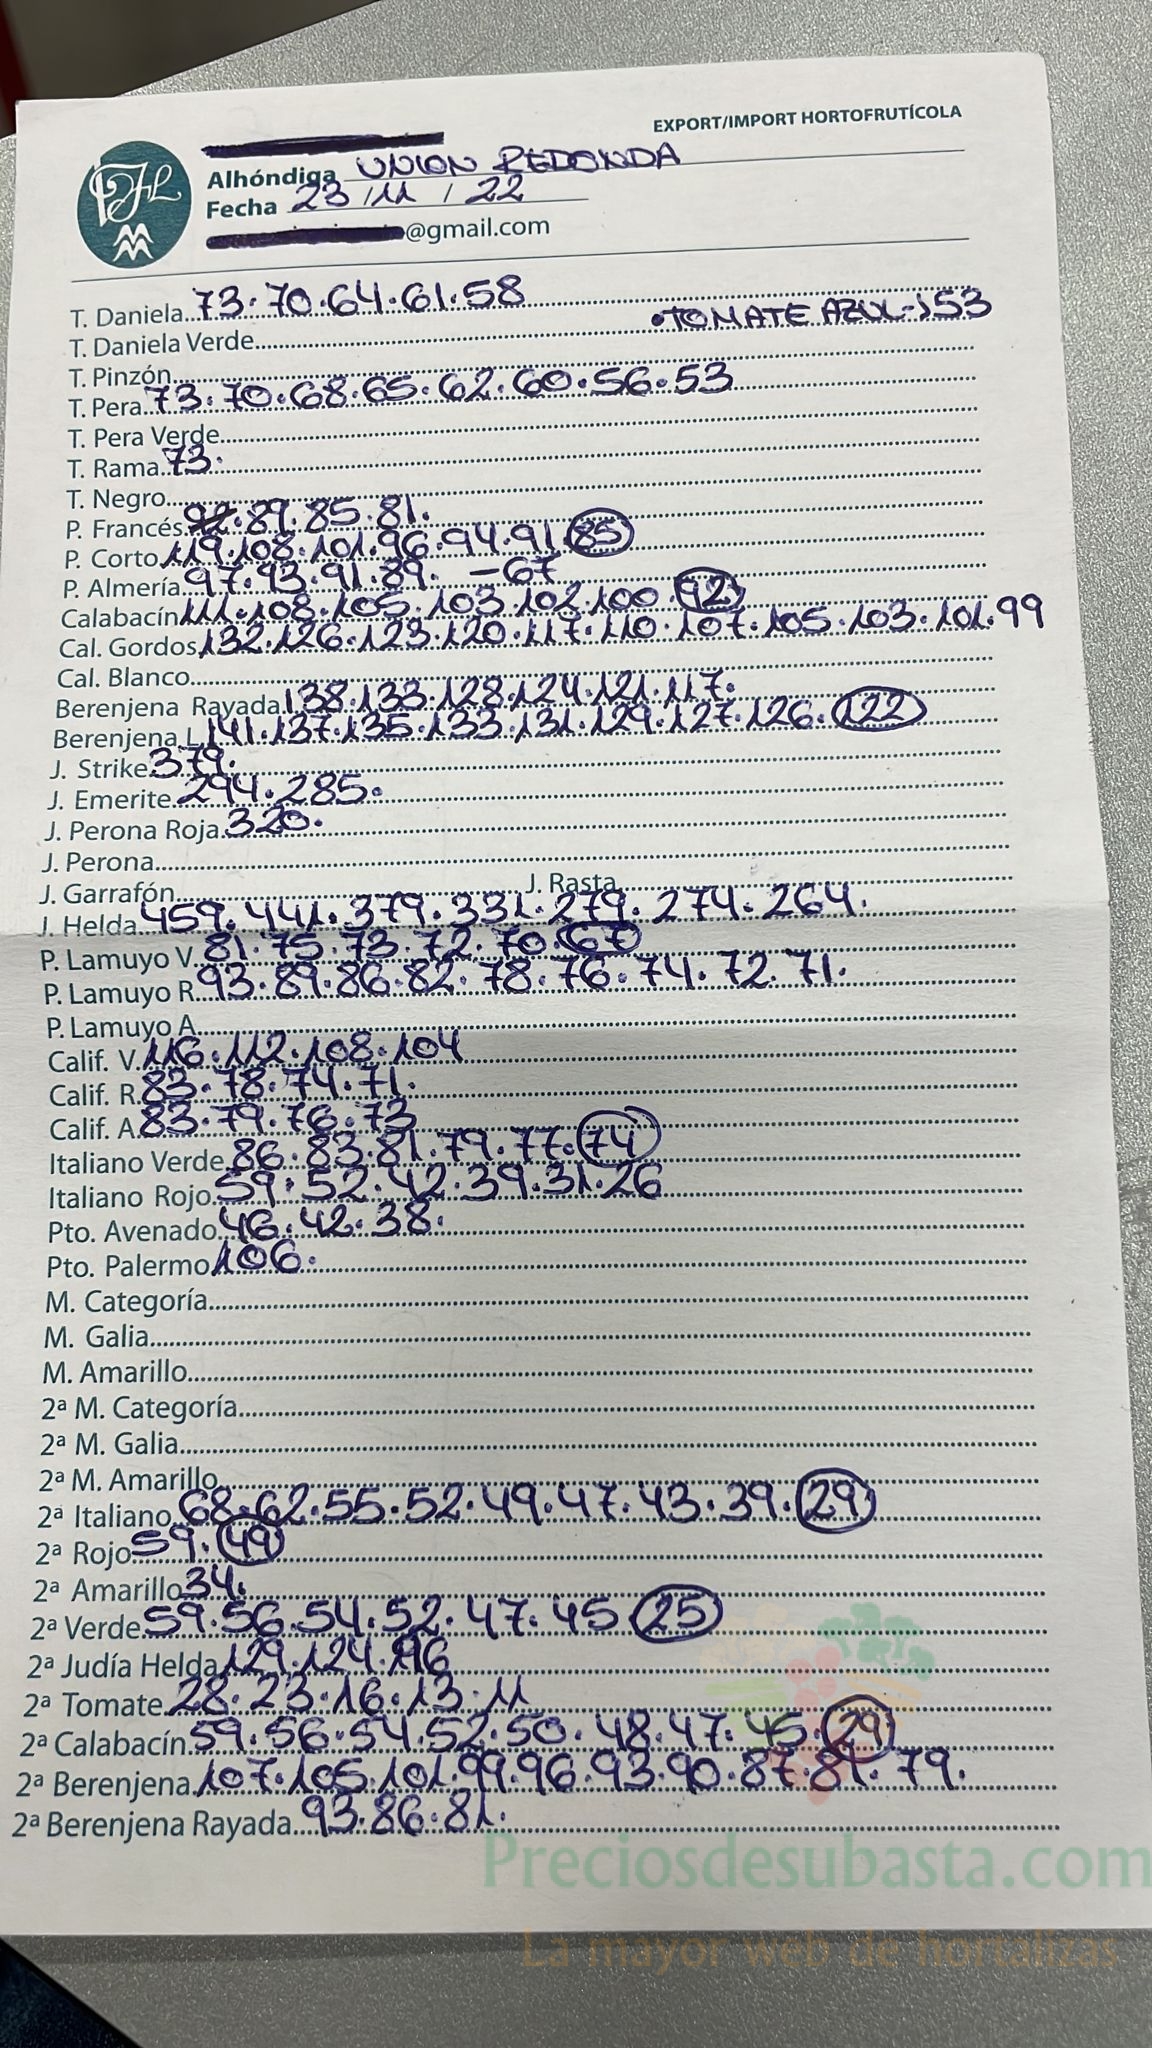 EXPORT/IMPORT HORTOFRUTÍCOLA
Alhóndiga UNION REDONDA
Fecha 23/11/22
@gmail.com
T. Daniela..73.70.64.61.58
•TOMATE AZUL-153
T. Daniela Verde
T. Pinzón
T. Pera..73.70.68.65.62.60.56.53
T. Pera Verde
T. Rama..73.
T. Negro
P. Francés 92.89.85.81.
P. Corto 119.108.101.96.94.91.85
P. Almería 97.93.91.89. -67
Calabacín 111.108.105.103.102.100.92
Cal. Gordos 132.126.123.120.117.110.107.105.103.101.99
Cal. Blanco
Berenjena Rayada 138.133.128.124.121.117.
Berenjena L 141.137.135.133.131.129.127.126.122
J. Strike 379.
J. Emerite 294.285.
J. Perona Roja 320.
J. Perona
J. Garrafón J. Rasta
J. Helda 459.441.379.331.279.274.264.
P. Lamuyo V. 81.75.73.72.70.67
P. Lamuyo R. 93.89.86.82.78.76.74.72.71.
P. Lamuyo A.
Calif. V. 116.112.108.104
Calif. R. 83.78.74.71.
Calif. A. 83.79.76.73
Italiano Verde 86.83.81.79.77.74
Italiano Rojo 59.52.42.39.31.26
Pto. Avenado 46.42.38.
Pto. Palermo 106.
M. Categoría
M. Galia
M. Amarillo
2ª M. Categoría
2ª M. Galia
2ª M. Amarillo
2ª Italiano 68.62.55.52.49.47.43.39.29
2ª Rojo 59.49
2ª Amarillo 34.
2ª Verde 59.56.54.52.47.45.25
2ª Judía Helda 129.124.96
2ª Tomate 28.23.16.13.11
2ª Calabacín 59.56.54.52.50.48.47.45.29
2ª Berenjena 107.105.101.99.96.93.90.87.81.79.
2ª Berenjena Rayada 93.86.81.
Preciosdesubasta.com
La mayor web de hortalizas